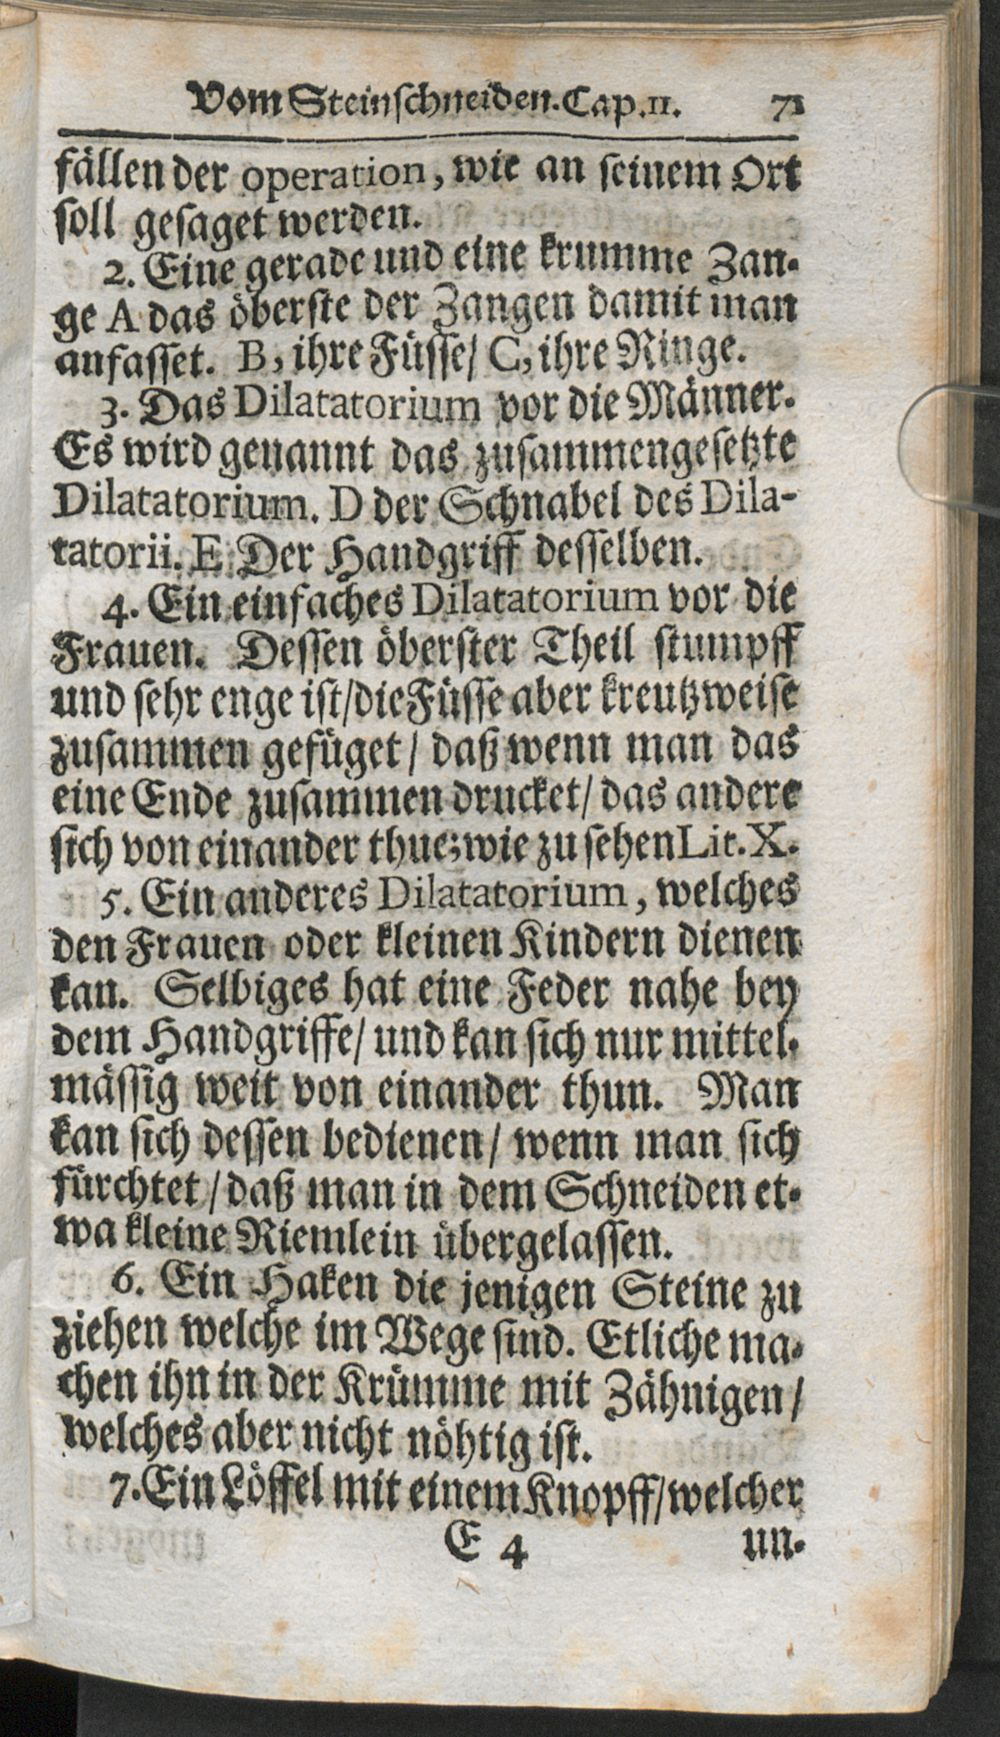 Vom Steinschneiden. Cap. 11. 71
fällen der operation, wie an seinem Ort
soll gesaget werden.
2. Eine gerade und eine krumme Zan-
ge A das öberste der Zangen damit man
anfasset. B, ihre Füsse/ C, ihre Ringe.
3. Das Dilatatorium vor die Männer.
Es wird genannt das zusammengesetzte
Dilatatorium. D der Schnabel des Dila-
tatorii. E Der Handgriff desselben.
4. Ein einfaches Dilatatorium vor die
Frauen. Dessen öberster Theil stumpff
und sehr enge ist/ die Füsse aber kreutzweise
zusammen gefüget/ daß wenn man das
eine Ende zusammen drucket/ das andere
sich von einander thue; wie zu sehen Lit. X.
5. Ein anderes Dilatatorium, welches
den Frauen oder kleinen Kindern dienen
kan. Selbiges hat eine Feder nahe bey
dem Handgriffe/ und kan sich nur mittel-
mässig weit von einander thun. Man
kan sich dessen bedienen/ wenn man sich
fürchtet/ daß man in dem Schneiden et-
wa kleine Riemlein übergelassen.
6. Ein Haken die jenigen Steine zu
ziehen welche im Wege sind. Etliche ma-
chen ihn in der Krümme mit Zähnigen/
welches aber nicht nöhtig ist.
7. Ein Löffel mit einem Knopff/ welcher
E 4 un-